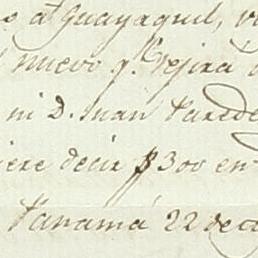 o a Guayaquil, v
nuevo q.e regira
ni D. Juan Parede
iere decir $300 en
Panamá 22 de